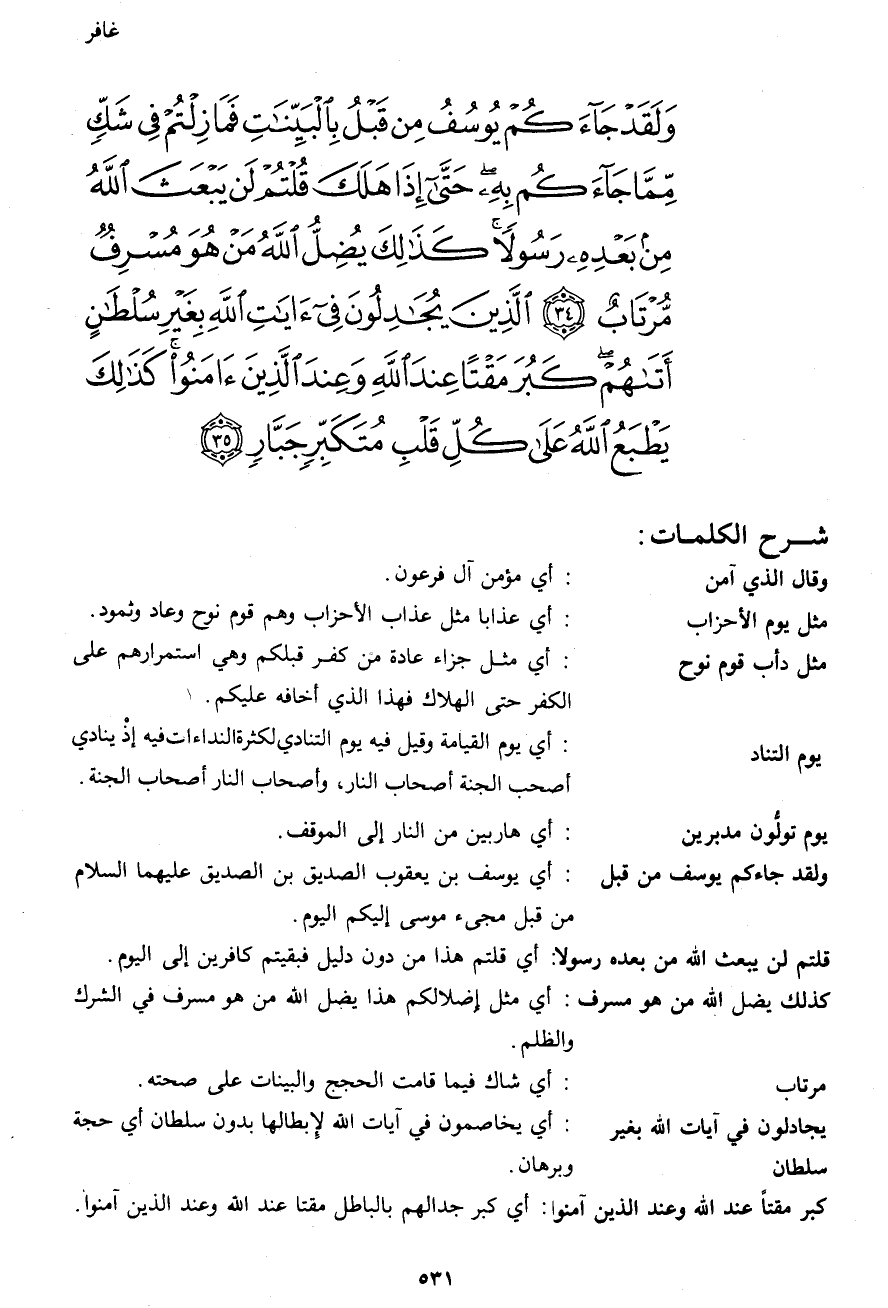 غافر
وَلَقَدْ جَآءَكُمْ يُوسُفُ مِن قَبْلُ بِٱلْبَيِّنَٰتِ فَمَا زِلْتُمْ فِى شَكٍّ
مِّمَّا جَآءَكُم بِهِۦ ۖ حَتَّىٰٓ إِذَا هَلَكَ قُلْتُمْ لَن يَبْعَثَ ٱللَّهُ
مِنۢ بَعْدِهِۦ رَسُولًا ۚ كَذَٰلِكَ يُضِلُّ ٱللَّهُ مَنْ هُوَ مُسْرِفٌ
مُّرْتَابٌ ﴿٣٤﴾ ٱلَّذِينَ يُجَٰدِلُونَ فِىٓ ءَايَٰتِ ٱللَّهِ بِغَيْرِ سُلْطَٰنٍ
أَتَىٰهُمْ ۖ كَبُرَ مَقْتًا عِندَ ٱللَّهِ وَعِندَ ٱلَّذِينَ ءَامَنُوا۟ ۚ كَذَٰلِكَ
يَطْبَعُ ٱللَّهُ عَلَىٰ كُلِّ قَلْبِ مُتَكَبِّرٍ جَبَّارٍ ﴿٣٥﴾
شــرح الكلمـات :
وقال الذي آمن : أي مؤمن آل فرعون.
مثل يوم الأحزاب : أي عذابا مثل عذاب الأحزاب وهم قوم نوح وعاد وثمود.
مثل دأب قوم نوح : أي مثـل جزاء عادة من كفـر قبلكم وهي استمرارهم على
الكفر حتى الهلاك فهذا الذي أخافه عليكم. ١
يوم التناد : أي يوم القيامة وقيل فيه يوم التنادي لكثرة النداءات فيه إذْ ينادي
أصحب الجنة أصحاب النار، وأصحاب النار أصحاب الجنة.
يوم تولُّون مدبرين : أي هاربين من النار إلى الموقف.
ولقد جاءكم يوسف من قبل : أي يوسف بن يعقوب الصديق بن الصديق عليهما السلام
من قبل مجىء موسى إليكم اليوم.
قلتم لن يبعث الله من بعده رسولا: أي قلتم هذا من دون دليل فبقيتم كافرين إلى اليوم.
كذلك يضل الله من هو مسرف : أي مثل إضلالكم هذا يضل الله من هو مسرف في الشرك
والظلم.
مرتاب : أي شاك فيما قامت الحجج والبينات على صحته.
يجادلون في آيات الله بغير : أي يخاصمون في آيات الله لإبطالها بدون سلطان أي حجة
سلطان وبرهان.
كبر مقتاً عند الله وعند الذين آمنوا: أي كبر جدالهم بالباطل مقتا عند الله وعند الذين آمنوا.
٥٣١